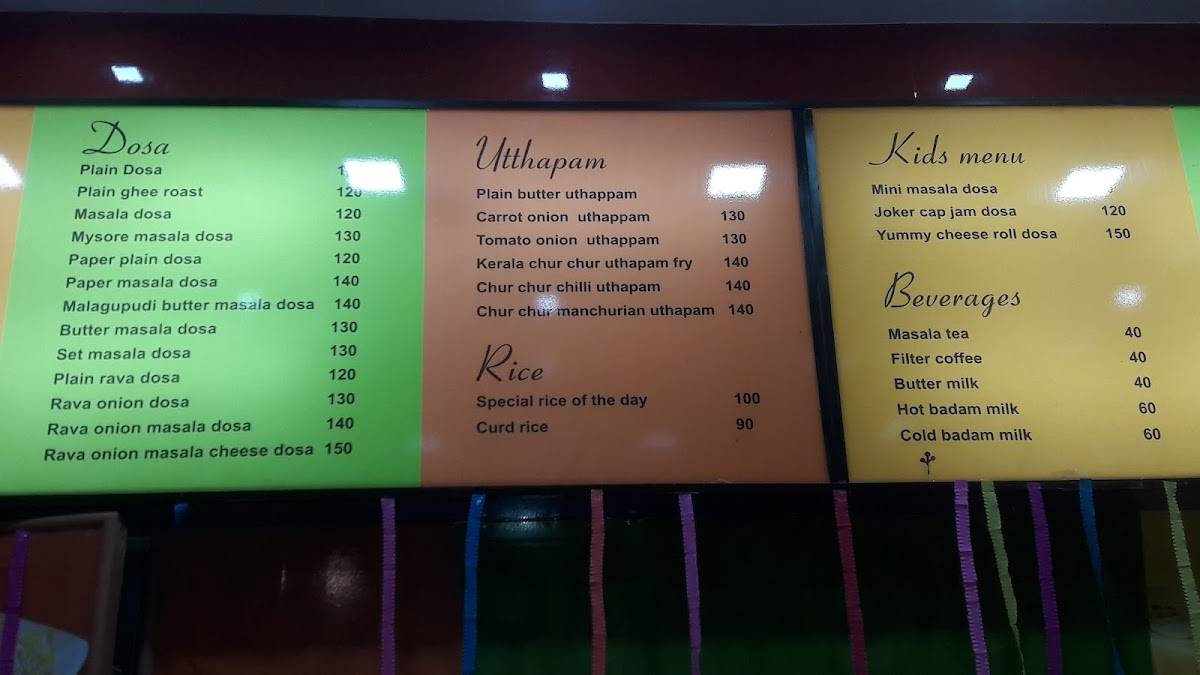 Dosa
Plain Dosa
Plain ghee roast 120
Masala dosa 120
Mysore masala dosa 130
Paper plain dosa 120
Paper masala dosa 140
Malagupudi butter masala dosa 140
Butter masala dosa 130
Set masala dosa 130
Plain rava dosa 120
Rava onion dosa 130
Rava onion masala dosa 140
Rava onion masala cheese dosa 150
Utthapam
Plain butter uthappam
Carrot onion uthappam 130
Tomato onion uthappam 130
Kerala chur chur uthapam fry 140
Chur chur chilli uthapam 140
Chur chur manchurian uthapam 140
Rice
Special rice of the day 100
Curd rice 90
Kids menu
Mini masala dosa
Joker cap jam dosa 120
Yummy cheese roll dosa 150
Beverages
Masala tea 40
Filter coffee 40
Butter milk 40
Hot badam milk 60
Cold badam milk 60